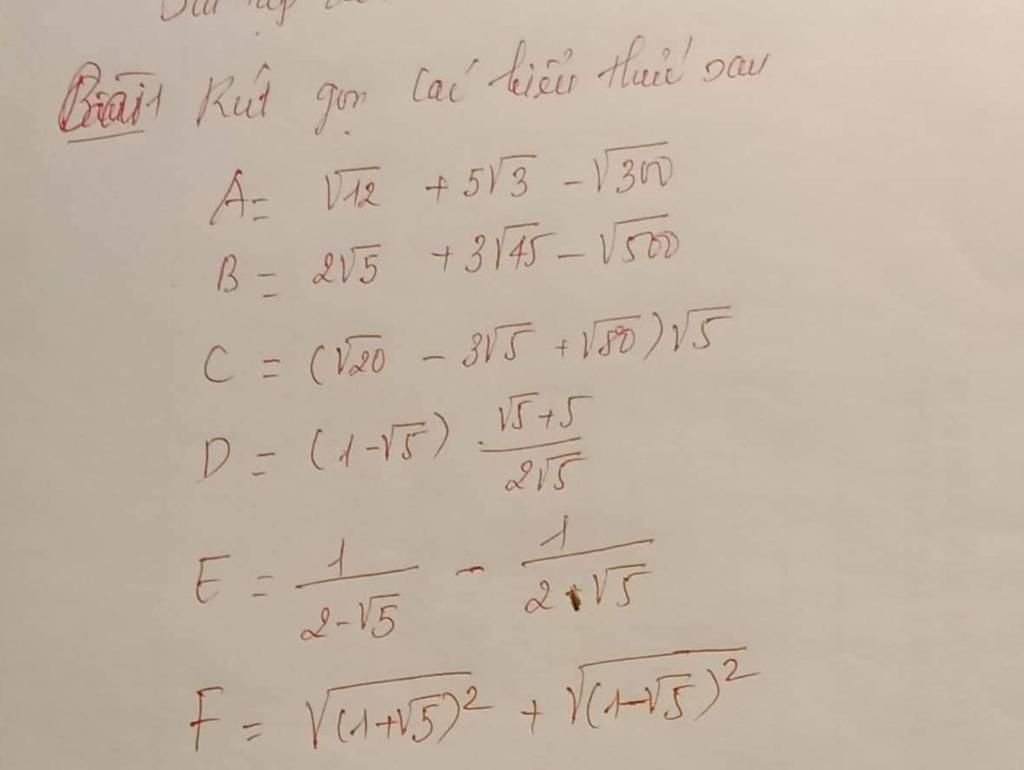 Bài 1 Rút gọn các biểu thức sau
A = √12 + 5√3 - √300
B = 2√5 + 3√45 - √500
C = (√20 - 3√5 + √80)√5
D = (1-√5) (√5+5)/(2√5)
E = 1/(2-√5) - 1/(2+√5)
F = √((1+√5)²) + √((1-√5)²)